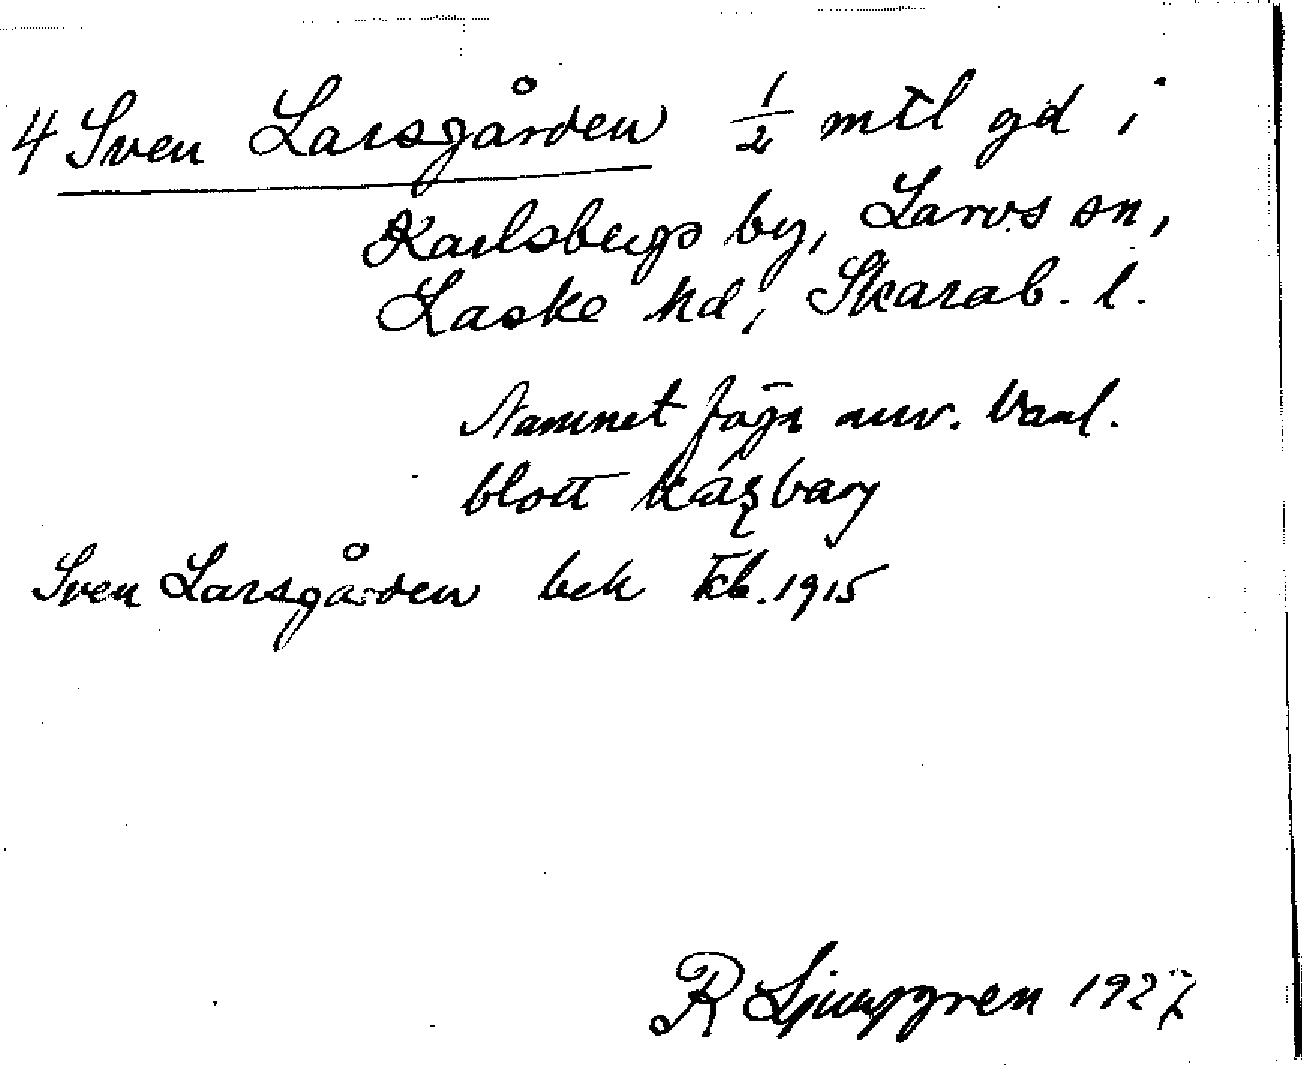 4 Sven Larsgården 1/2 mtl gd i
Karlsbergs by, Larvs sn,
Laske hd, Skarab. l.
Namnet föga anv. Vanl.
blott
Sven Larsgården bek Ekb. 1915
R Ljunggren 1927